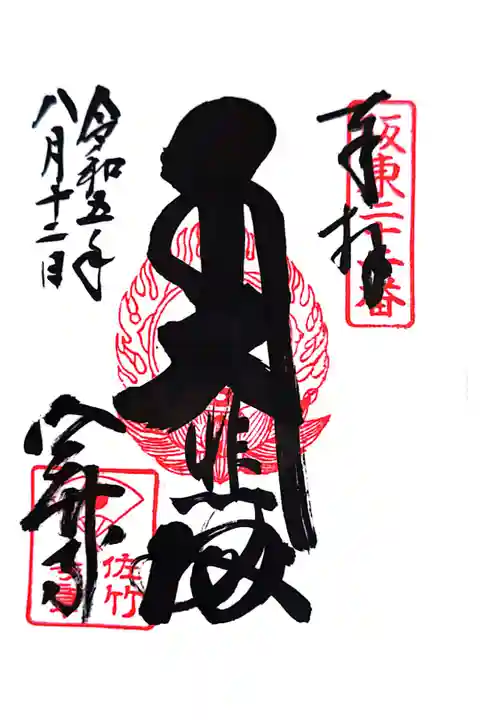 坂東二十二番
奉拝
大悲殿
令和五年
八月十二日
佐竹